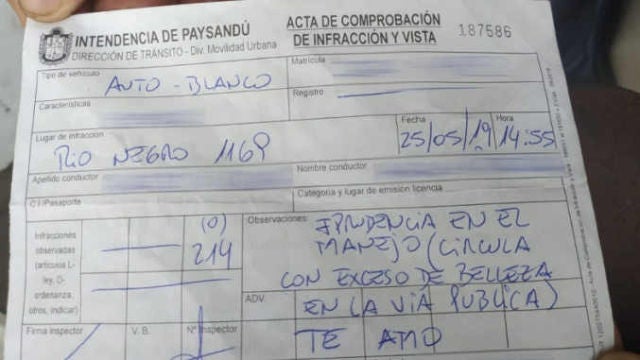 INTENDENCIA DE PAYSANDÚ
DIRECCIÓN DE TRÁNSITO - Div. Movilidad Urbana
ACTA DE COMPROBACIÓN
DE INFRACCIÓN Y VISTA
187586
Tipo de vehículo
AUTO - BLANCO
Matrícula
Características
Registro
Lugar de infracción
RIO NEGRO 1169
Fecha
25/05/19
Hora
14:55
Apellido conductor
Nombre conductor
C.I/Pasaporte
Categoría y lugar de emisión licencia
Infracciones
observadas
(artículos L-
ley, D-
ordenanza,
otros, indicar)
(0)
214
Observaciones
EN EL
MANEJO (CIRCULA
CON EXCESO DE BELLEZA
EN LA VIA PUBLICA)
TE AMO
ADV.
Firma Inspector
V. B.
Nº Inspector